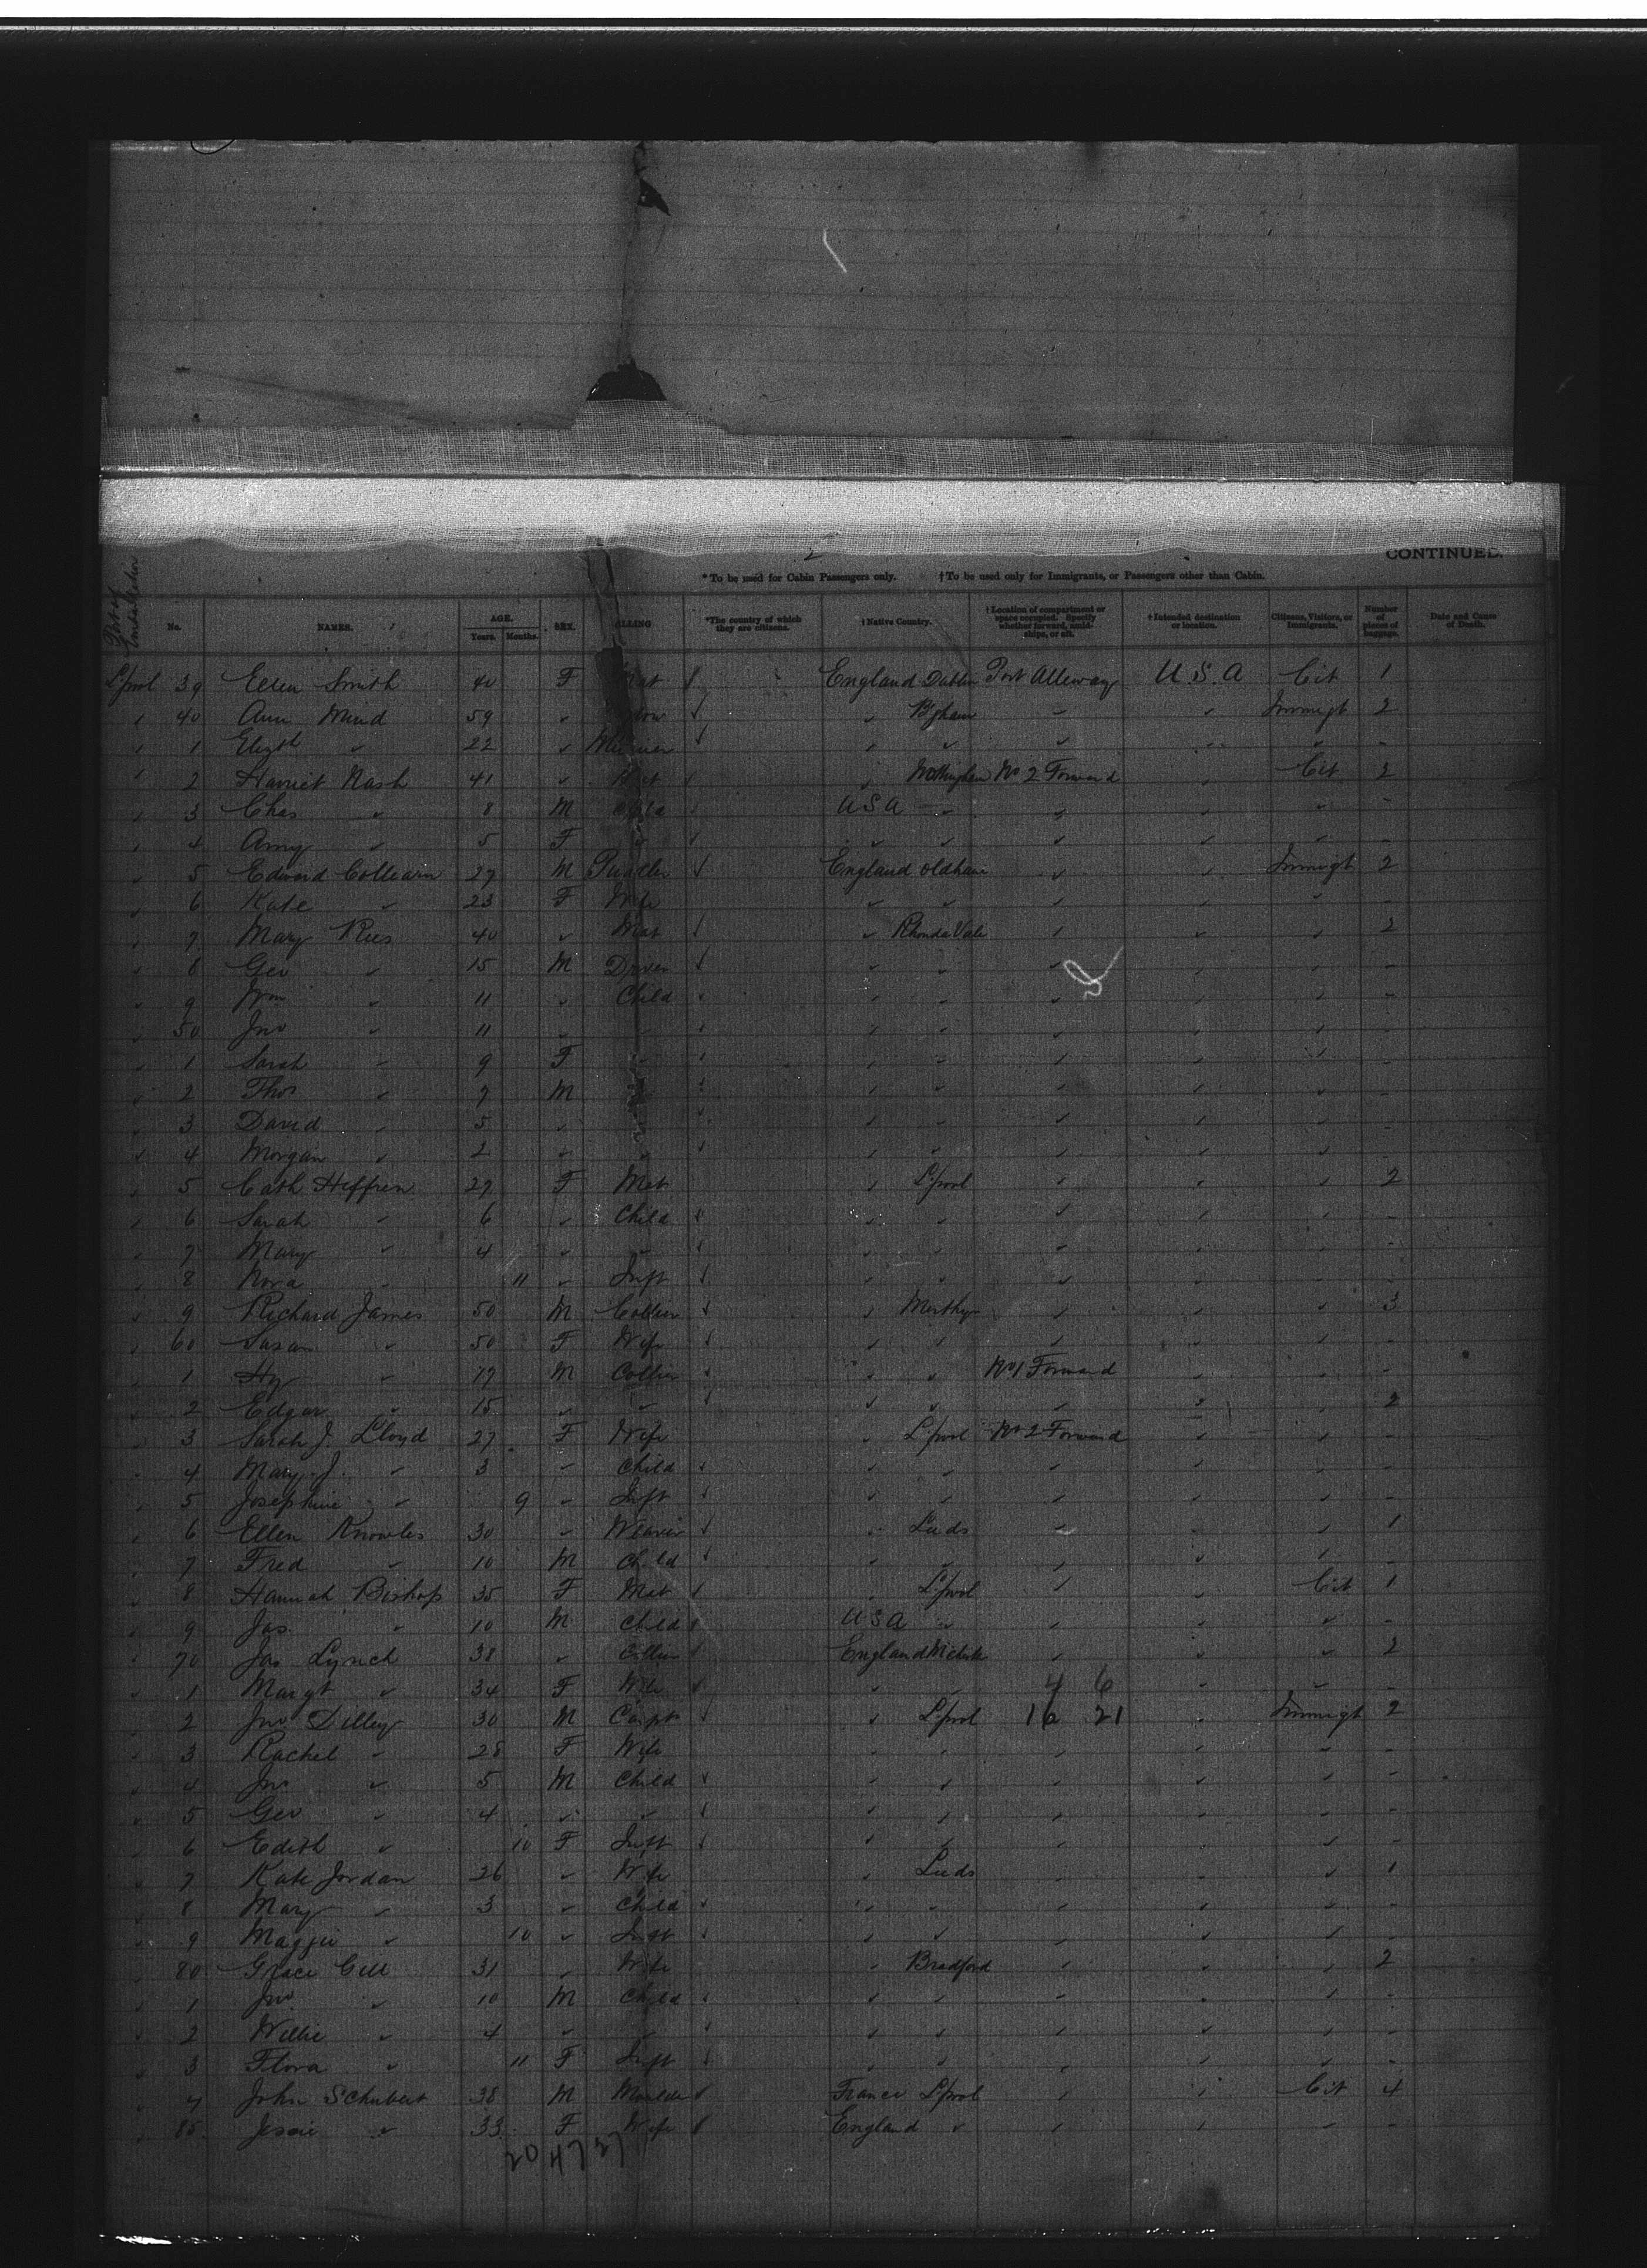 2
CONTINUED.
* To be used for Cabin Passengers only. † To be used only for Immigrants, or Passengers other than Cabin.
Port of Embarkation No. NAMES. AGE. Years. Months. SEX. CALLING *The country of which they are citizens. † Native Country. † Location of compartment or space occupied. Specify whether forward, amidships, or aft. † Intended destination or location. Citizens, Visitors, or Immigrants. Number of pieces of baggage. Date and Cause of Death.
L'pool 39 Ellen Smith 40 F Mat England Dublin Port Alleway U.S.A Cit 1
40 Ann Mind 59 " B'gham " " Immigt 2
1 Elizth " 22 " " " " " " -
2 Harriet Nash 41 " " Nottingham No 2 Forward " Cit 2
3 Chas " 8 M Child U S A " " " " -
4 Amy " 5 F " " " " " " -
5 Edward Collearn 27 M Puddler England Oldham " " Immigt 2
6 Kate " 23 F Wife " " " " " -
7 Mary Rees 40 " Mat " Rhonda Vale " " " 2
8 Geo " 15 M " " " " " -
9 Wm " 11 " Child " " " " " -
50 Jno " 11 " " " " " " -
1 Sarah " 9 F " " " " " " -
2 Thos " 7 M " " " " " -
3 David " 5 " " " " " " -
4 Morgan " 2 " " " " " " " -
5 Cath Heffren 27 F Mat " L'pool " " " 2
6 Sarah " 6 " Child " " " " " -
7 Mary " 4 " " " " " " " -
8 Nora " 11 " Inft " " " " " -
9 Richard James 50 M Collier " Merthyr " " " 3
60 Susan " 50 F Wife " " " " " -
1 Hy " 17 M Collier " " No 1 Forward " " -
2 Edgar " 15 " " " " " " " 2
3 Sarah J. Lloyd 27 F Wife " L'pool No 2 Forward " " -
4 Mary J. " 3 " Child " " " " " -
5 Josephine " 9 " Inft " " " " " -
6 Ellen Knowles 30 " Weaver " Leeds " " " 1
7 Fred " 10 M Child " " " " " -
8 Hannah Bishop 35 F Mat " L'pool " " Cit 1
9 Jas " 10 M Child U S A " " " " -
70 Jas Lynch 38 " Collier England " " " 2
1 Margt " 34 F Wife " " 4 6 " " -
2 Jno Dilley 30 M Carptr " L'pool 16 21 " Immigt 2
3 Rachel " 28 F Wife " " " " " -
4 Jno " 5 M Child " " " " " -
5 Geo " 4 " " " " " " " -
6 Edith " 10 F Inft " " " " " -
7 Kate Jordan 26 " Wife " Leeds " " " 1
8 Mary " 3 " Child " " " " " -
9 Maggie " 10 " Inft " " " " " -
80 Grace Cell 31 " Wife " Bradford " " " 2
1 Jno " 10 M Child " " " " " -
2 Willie " 4 " " " " " " " -
3 Flora " 11 F Inft " " " " " -
4 John Schubert 38 M Moulder France L'pool " " Cit 4
85 Jessie " 33 F Wife England " " " " -
20 47 27